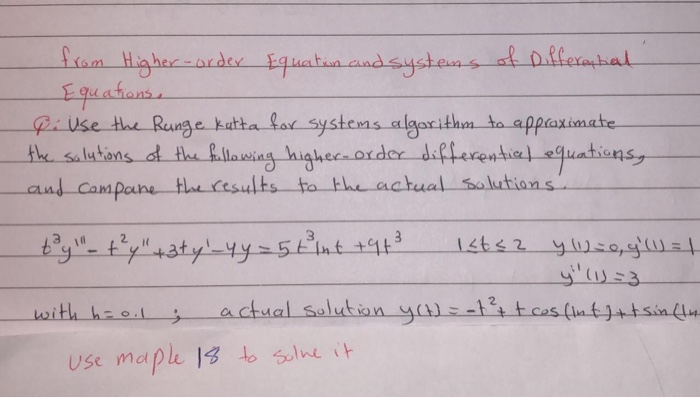 from Higher-order Equation and systems of Differential
Equations.
Q: Use the Runge Kutta for systems algorithm to approximate
the solutions of the following higher-order differential equations,
and compare the results to the actual solutions.
t³y''' - t²y" + 3ty' - 4y = 5t³lnt + 9t³ 1≤t≤2 y(1)=0, y'(1)=1
y''(1)=3
with h=0.1 ; actual solution y(t) = -t² + t cos(lnt) + t sin(ln
Use maple 18 to solve it